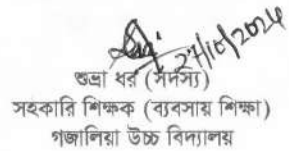 27/10/2024
শুভ্রা ধর (সদস্য)
সহকারি শিক্ষক (ব্যবসায় শিক্ষা)
গজালিয়া উচ্চ বিদ্যালয়